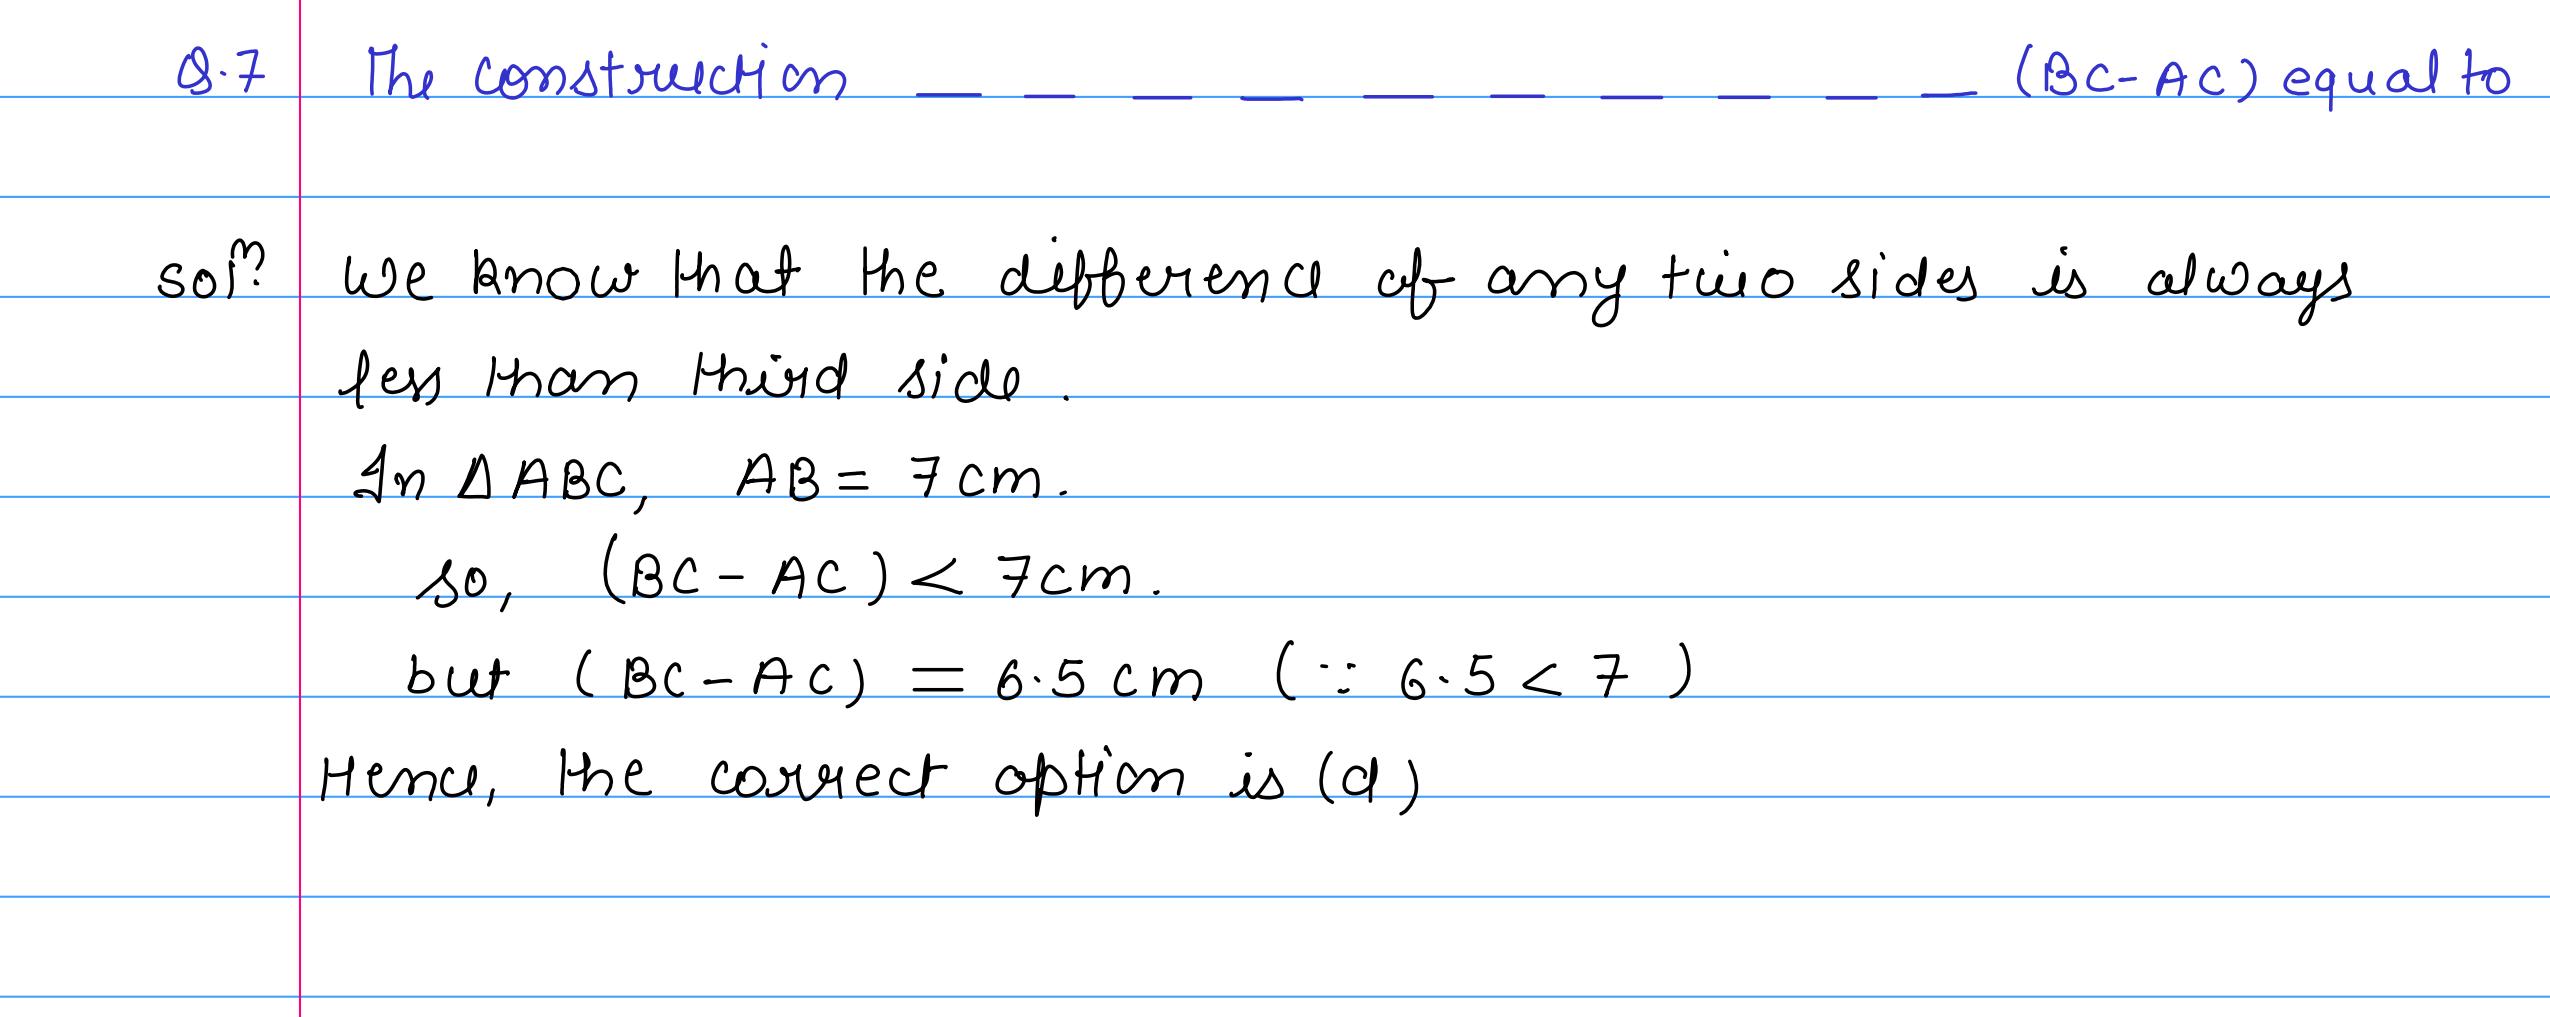 Q.7 The construction __________ (BC-AC) equal to
solⁿ. We know that the difference of any two sides is always
less than third side.
In ΔABC, AB = 7cm.
so, (BC - AC) < 7cm.
but (BC - AC) = 6.5 cm (∵ 6.5 < 7)
Hence, the correct option is (d)